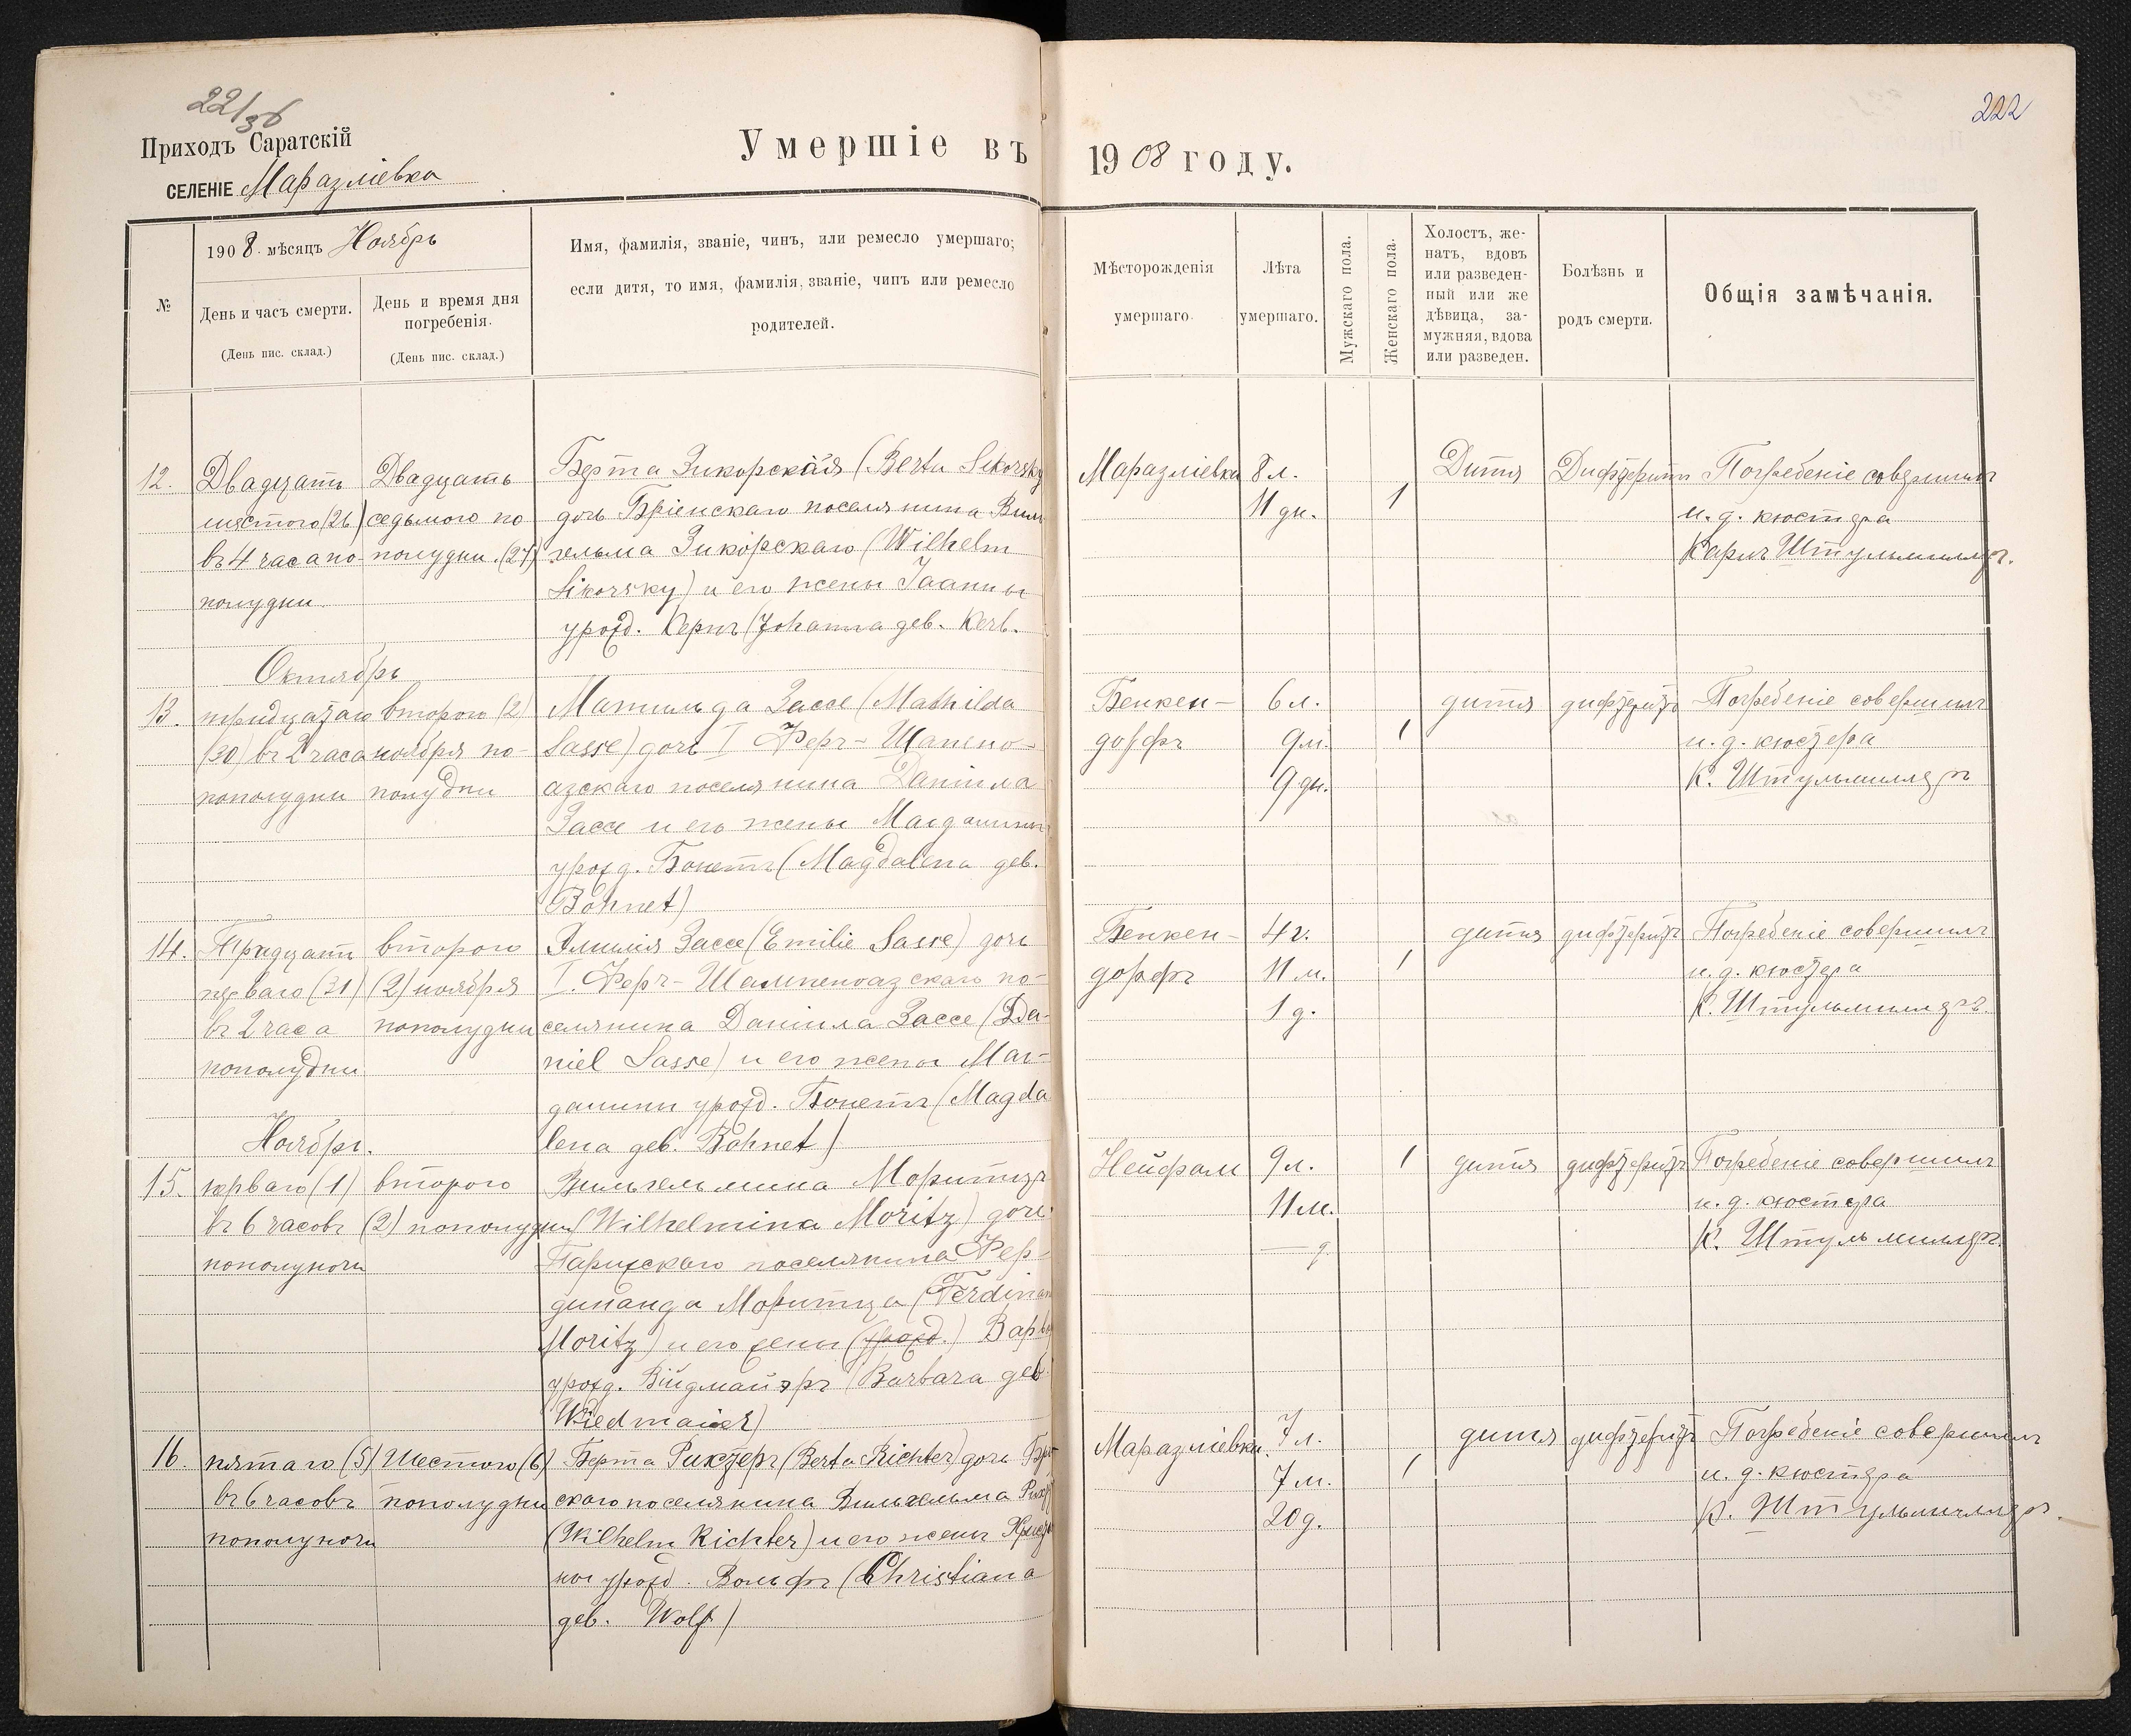 22/36
222
Приходъ Саратскій
Умершіе въ 1908 году.
СЕЛЕНІЕ Маразліевка
№
1908 мѣсяцъ Ноябрь
День и часъ смерти.
(День пис. склад.)
День и время дня
погребенія.
(День пис. склад.)
Имя, фамилія, званіе, чинъ, или ремесло умершаго;
если дитя, то имя, фамилія, званіе, чинъ или ремесло
родителей.
Мѣсторожденія
умершаго.
Лѣта
умершаго.
Мужскаго пола.
Женскаго пола.
Холостъ, же-
натъ, вдовъ
или разведен-
ный или же
дѣвица, за-
мужняя, вдова
или разведен.
Болѣзнь и
родъ смерти.
Общія замѣчанія.
12. Двадцать Двадцать Берта Зикорская (Berta Sikorsky Маразліевка 8 л. Дитя Дифтеритъ Погребеніе совершилъ
шестого (26) седьмого по дочь Бріенскаго поселянина Виль 11 дн. 1 и. д. кюстера
въ 4 часа по- полудни. (27) гельма Зикорскаго (Wilhelm Карлъ Штульмиллеръ.
полудни. Sikorsky) и его жены Іоанны
урожд. Кернъ (Johanna geb. Kerb.
Октябрь
13. тридцатаго второго (2) Матильда Зассе (Mathilda Бенкен- 6 л. дитя дифтеритъ Погребеніе совершилъ
(30) въ 2 часа ноября по- Sasse) дочь I Феръ-Шампено- дорфъ 9 м. 1 и. д. кюстера
пополудни полудни азскаго поселянина Даніила 9 дн. К. Штульмиллеръ
Зассе и его жены Магдалины
урожд. Бонетъ (Magdalena geb.
Bohnet)
14. Тридцать второго Эмилія Зассе (Emilie Sasse) дочь Бенкен- 4 г. дитя дифтеритъ Погребеніе совершилъ
перваго (31) (2) ноября I. Феръ-Шампеноазскаго по- дорфъ 11 м. 1 и. д. кюстера
въ 2 часа пополудни селянина Даніила Зассе (Da- 1 д. К. Штульмиллеръ.
пополудни niel Sasse) и его жены Маг-
далины урожд. Бонетъ (Magda
Ноябрь. lena geb. Bohnet)
15. перваго (1) второго Вильгельмина Моритцъ Нейфалъ 9 л. 1 дитя дифтеритъ Погребеніе совершилъ
въ 6 часовъ (2) пополудни (Wilhelmina Moritz) дочь 11 м. и. д. кюстера
пополуночи Парижскаго поселянина Фер- — д. К. Штульмиллеръ.
динанда Моритца (Ferdinan
Moritz) и его жены (урожд.) Варва
урожд. Видмайэръ (Barbara geb
Wiedmaier)
16. пятаго (5) Шестого (6) Берта Рихтеръ (Berta Richter) дочь Бріен Маразліевка. 7 л. дитя дифтеритъ Погребеніе совершилъ
въ 6 часовъ пополудни скаго поселянина Вильгельма Рихт 7 м. 1 и. д. кюстера
пополуночи (Wilhelm Richter) и его жены Христі 20 д. К. Штульмиллеръ.
ны урожд. Вольфъ (Christiana
geb. Wolf)